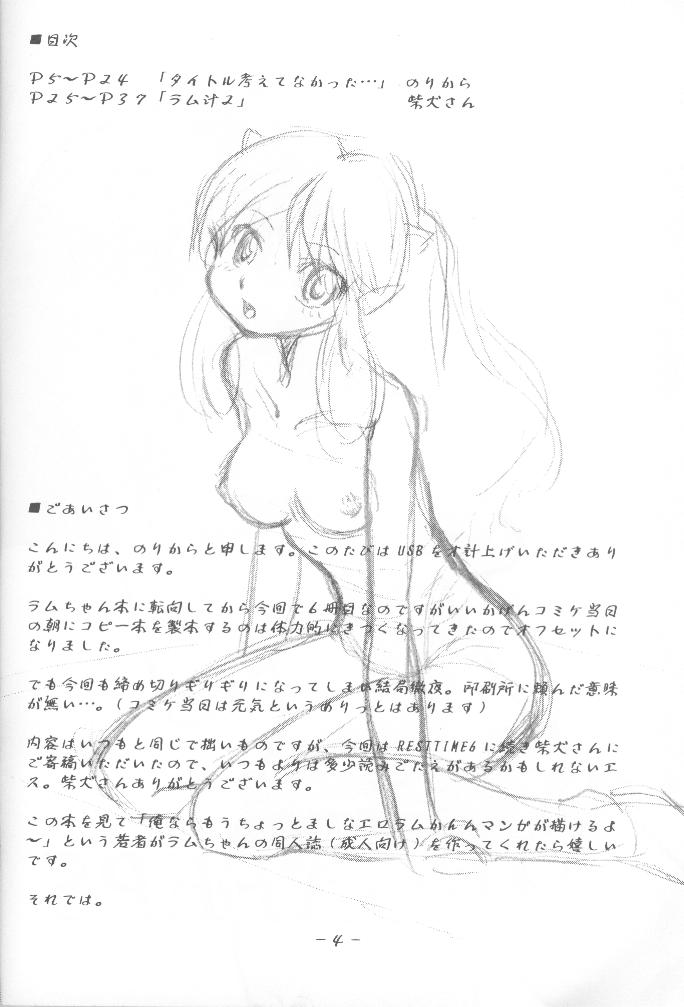 ■目次
P5～P24 「タイトル考えてなかった…」 のりから
P25～P37 「ラム汁2」 柴犬さん
■ごあいさつ
こんにちは、のりからと申します。このたびはUSBをオ計上げいただきあり
がとうございます。
ラムちゃん本に転向してから今回で6冊目なのですがいいかげんコミケ当日
の朝にコピー本を製本するのは体力的にきつくなってきたのでオフセットに
なりました。
でも今回も締め切りぎりぎりになってしまい結局徹夜。印刷所に頼んだ意味
が無い…。(コミケ当日は元気というめりっとはあります)
内容はいつもと同じで拙いものですが、今回はRESTTIME6に続き柴犬さんに
ご寄稿いただいたので、いつもよりは多少読みごたえがあるかもしれないエ
ス。柴犬さんありがとうございます。
この本を見て「俺ならもうちょっとましなエロラムかんんマンガが描けるよ
～」という若者がラムちゃんの同人誌(成人向け)を作ってくれたら嬉しい
です。
それでは。
－4－